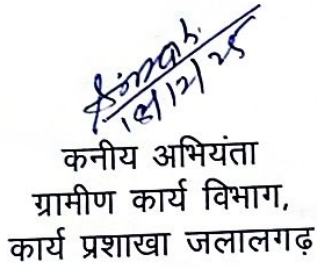 18/12/25
कनीय अभियंता
ग्रामीण कार्य विभाग,
कार्य प्रशाखा जलालगढ़